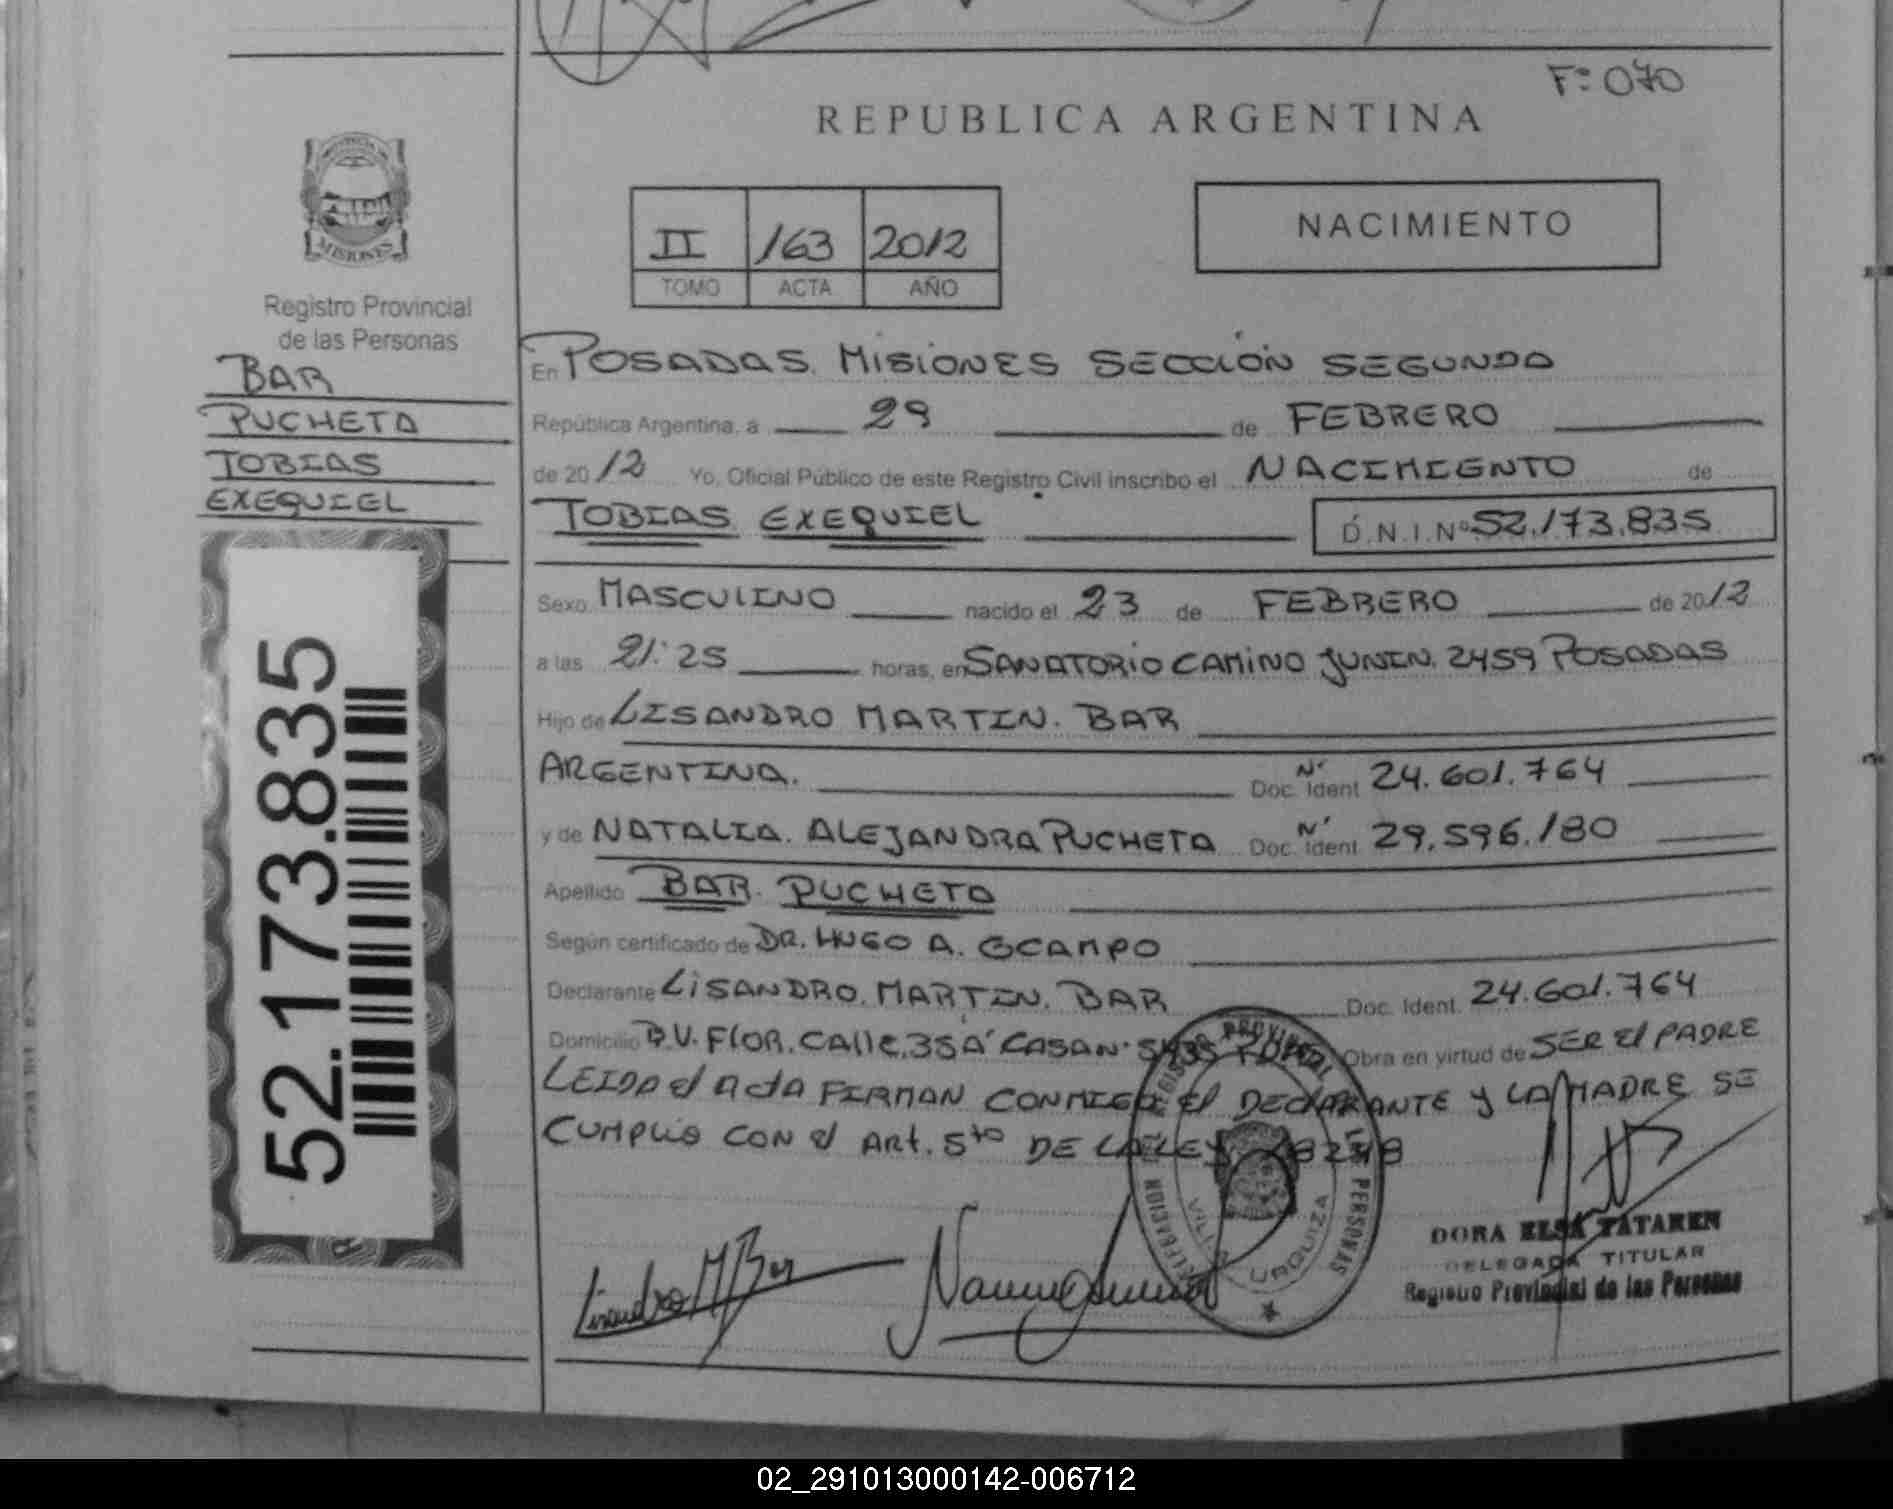 F:º 070
REPUBLICA ARGENTINA
MISIONES
Registro Provincial
de las Personas
BAR
PUCHETA
TOBIAS
EXEQUIEL
52.173.835
II 163 2012
TOMO ACTA AÑO
NACIMIENTO
En POSADAS. MISIONES SECCION SEGUNDA
República Argentina, a 29 de FEBRERO
de 2012 Yo, Oficial Público de este Registro Civil inscribo el NACIMIENTO de
TOBIAS EXEQUIEL D.N.I.Nº 52.173.835
Sexo MASCULINO nacido el 23 de FEBRERO de 2012
a las 21:25 horas, en SANATORIO CAMINO JUNIN. 2459 POSADAS
Hijo de LISANDRO MARTIN. BAR
ARGENTINA. Doc. Ident. Nº 24.601.764
y de NATALIA. ALEJANDRA PUCHETA Doc. Ident. Nº 29.596.180
Apellido BAR. PUCHETA
Según certificado de DR. HUGO A. OCAMPO
Declarante LISANDRO. MARTIN. BAR Doc. Ident. 24.601.764
Domicilio B.V. Flor. Calle. 35A CASA Nº Obra en virtud de SER El PADRE
LEIDA el ActA FIRMAN CONMIGO El DECLARANTE y LA MADRE SE
CUMPLIO CON el Art. 5to DE LA LEY 18248
Lisandro M Bar
REGISTRO PROVINCIAL DE LAS PERSONAS
VILLA URQUIZA
DORA ELSA TATAREN
DELEGADA TITULAR
Registro Provincial de las Personas
02_291013000142-006712